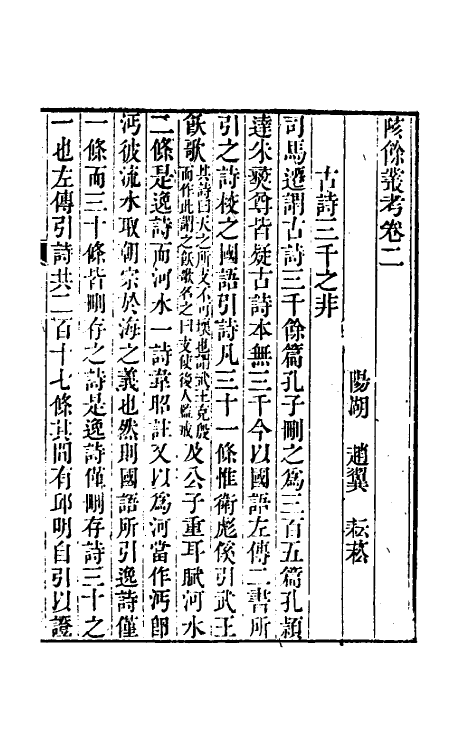 陔餘叢考卷二
陽湖 趙翼 耘菘
古詩三千之非
司馬遷謂古詩三千餘篇孔子刪之為三百五篇孔穎
達朱彝尊皆疑古詩本無三千今以國語左傳二書所
引之詩校之國語引詩凡三十一條惟衛彪傒引武王
飫歌其詩曰天之所支不可壞也謂武王克殷而作此謂之飫歌名之曰支使後人監戒及公子重耳賦河水
二條是逸詩而河水一詩韋昭註又以為河當作沔卽
沔彼流水取朝宗於海之義也然則國語所引逸詩僅
一條而三十條皆刪存之詩是逸詩僅刪存詩三十之
一也左傳引詩共二百十七條其間有邱明自引以證